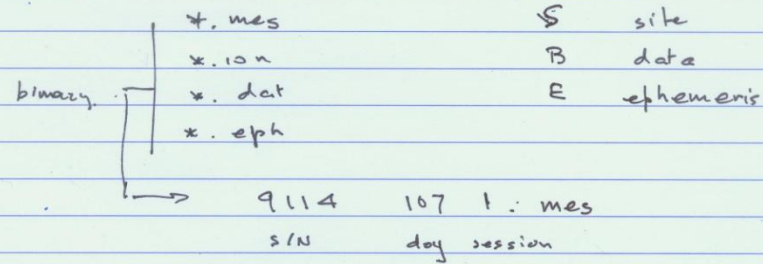 *. mes S site
*. ion B data
binary. *. dat E ephemeris
*. eph
9114 107 1. mes
S/N doy session